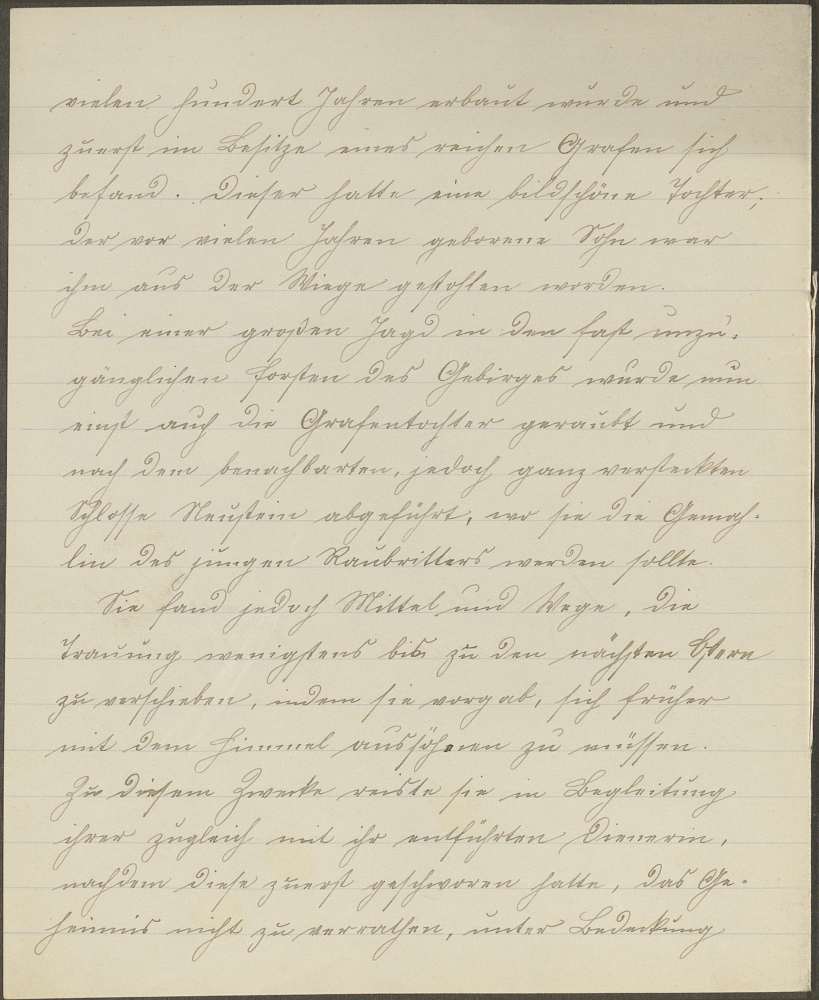 vielen hundert Jahren erbaut wurde und
zuerst im Besitze eines reichen Grafen sich
befand. Dieser hatte eine bildschöne Tochter;
der vor vielen Jahren geborene Sohn war
ihm aus der Wiege gestohlen worden.
Bei einer großen Jagd in den fast unzu-
gänglichen Forsten des Gebirges wurde nun
einst auch die Grafentochter geraubt und
nach dem benachbarten, jedoch ganz versteckten
Schlosse Neustein abgeführt, wo sie die Gemah-
lin des jungen Raubritters werden sollte.
Sie fand jedoch Mittel und Wege, die
Trauung wenigstens bis zu den nächsten Ostern
zu verschieben, indem sie vorgab, sich früher
mit dem Himmel aussöhnen zu müssen.
Zu diesem Zwecke reiste sie in Begleitung
ihrer zugleich mit ihr entführten Dienerin,
nachdem diese zuerst geschworen hatte, das Ge-
heimnis nicht zu verrathen, unter Bedeckung